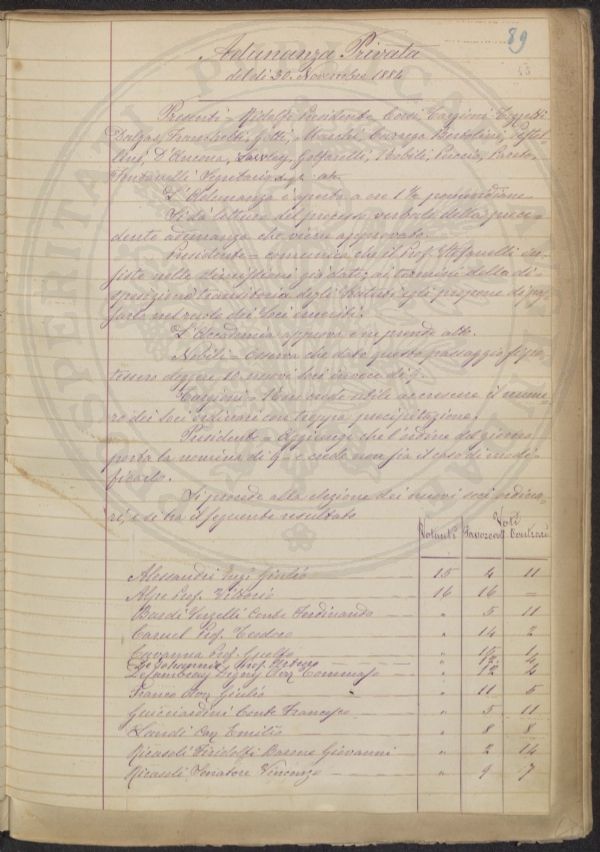 89
Adunanza Privata
del dì 30. Novembre 1884
Presenti = Ridolfi Presidente, Corsi, Targioni-Tozzetti
Dalgas, Franchetti, Gotti, Marchi, Caruega Bertolini, Pestel
lini, D'Ancona, Lawley, Golfarelli, Nobili, Puccia,
Fontanelli Segretario degli atti.
L'Adunanza è aperta a ore 1 ½ pomeridiane
Si dà lettura del processo verbale della prece=
dente adunanza che viene approvato.
Presidente = comunica che il Prof. Stefanelli in=
siste nelle dimissioni già date, ai termini della di=
sposizione transitoria degli Statuti egli propone di pas=
sarlo nel ruolo dei Soci emeriti.
L'Accademia approva e ne prende atto.
Nobili = Osserva che dato questo passaggio si po=
tessero eleggere 10 nuovi soci invece di 9.
Targioni = Non crede utile accrescere il nume=
ro dei soci ordinari con troppa precipitazione.
Presidente = Aggiunge che l'ordine del giorno
porta la nomina di 9 = e crede non sia il caso di modi=
ficarlo.
Si procede alla elezione dei nuovi soci ordina=
ri, e si ha il seguente resultato
Voti
Votanti Favorevoli Contrari
Alessandri Giulio 15 4 11
Alpe Prof. Vittorio 16 16 =
Bardi Serzelli Conte Ferdinando " 5 11
Caruel Prof. Teodoro " 14 2
Cavanna Prof. Guelfo " 15 1
De Johannis, Prof. Arturo " 12 4
Desambrois Digny Tommaso " 12 4
Franco Giulio " 11 5
Guicciardini Conte Francesco " 5 11
Landi Emilio " 8 8
Ricasoli Firidolfi Barone Giovanni " 2 14
Ricasoli Senatore Vincenzo " 9 7